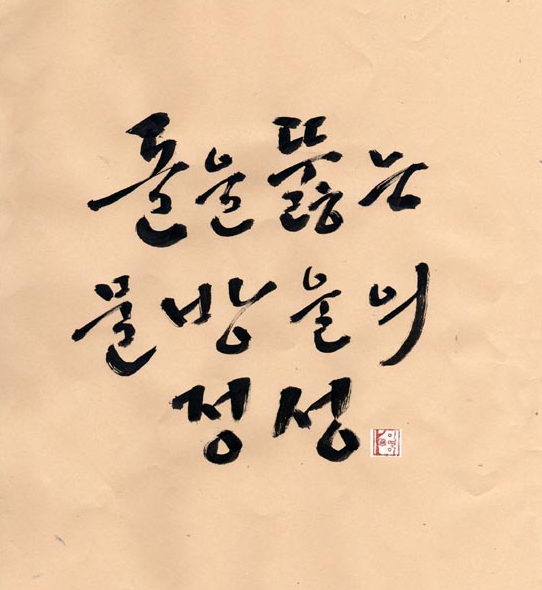 돌을 뚫는
물방울의
정성